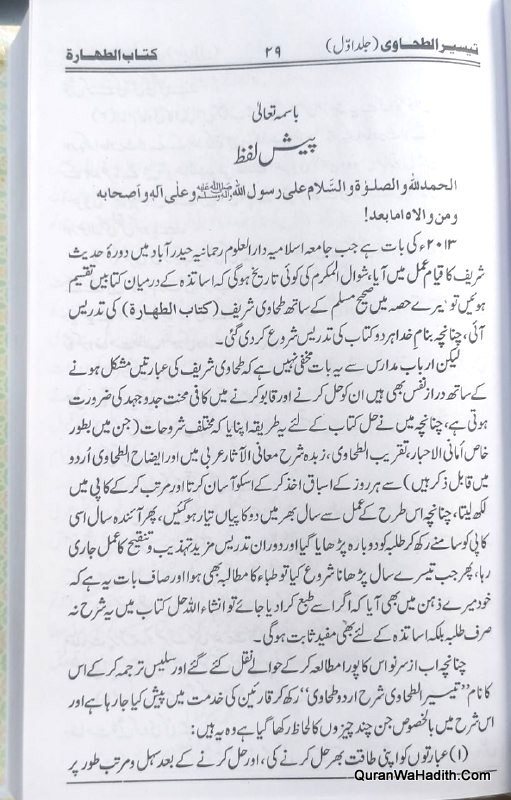 تیسیر الطحاوی (جلد اوّل) ۲۹ کتاب الطھارۃ
باسمہ تعالیٰ
پیش لفظ
الحمدللہ والصلوٰۃ والسَّلام علی رسول اللہ ﷺ وعلٰی آلہٖ واصحابہ
ومن والاہ امابعد!
۲۰۱۳ء کی بات ہے جب جامعہ اسلامیہ دارالعلوم رحمانیہ حیدرآباد میں دورۂ حدیث
شریف کا قیام عمل میں آیا، شوال المکرم کی کوئی تاریخ ہوگی کہ اساتذہ کے درمیان کتابیں تقسیم
ہوئیں تو میرے حصہ میں صحیح مسلم کے ساتھ طحاوی شریف (کتاب الطھارۃ) کی تدریس
آئی، چنانچہ بنام خدا ہر دو کتاب کی تدریس شروع کردی گئی۔
لیکن ارباب مدارس سے یہ بات مخفی نہیں ہے کہ طحاوی شریف کی عبارتیں مشکل ہونے
کے ساتھ دراز نفس بھی ہیں ان کو حل کرنے اور قابو کرنے میں کافی محنت جدوجہد کی ضرورت
ہوتی ہے، چنانچہ میں نے حل کتاب کے لئے یہ طریقہ اپنایا کہ مختلف شروحات (جن میں بطور
خاص أمانی الاحبار، تقریب الطحاوی، زبدہ شرح معانی الآثار عربی میں اور ایضاح الطحاوی اُردو
میں قابل ذکر ہیں) سے ہر روز کے اسباق اخذ کرکے اسکو آسان کرتا اور مرتب کرکے کاپی میں
لکھ لیتا، چنانچہ اس طرح کے عمل سے سال بھر میں دو کاپیاں تیار ہوگئیں، پھر آئندہ سال اسی
کاپی کو سامنے رکھ کر طلبہ کو دوبارہ پڑھایا گیا اور دوران تدریس مزید تہذیب و تنقیح کا عمل جاری
رہا، پھر جب تیسرے سال پڑھانا شروع کیا تو طلباء کا مطالبہ بھی ہوا اور صاف بات یہ ہے کہ
خود میرے ذہن میں بھی آیا کہ اگر اسے طبع کرادیا جائے تو انشاء اللہ حل کتاب میں یہ شرح نہ
صرف طلبہ بلکہ اساتذہ کے لئے بھی مفید ثابت ہوگی۔
چنانچہ اب از سرنو اس کا پورا مطالعہ کرکے حوالے نقل کئے گئے اور سلیس ترجمہ کرکے اس
کا نام ”تیسیر الطحاوی شرح اردو طحاوی“ رکھ کر قارئین کی خدمت میں پیش کیا جارہا ہے اور
اس شرح میں بالخصوص جن چند چیزوں کا لحاظ رکھا گیا ہے وہ یہ ہیں:
(۱) عبارتوں کو اپنی طاقت بھر حل کرنے کی، اور حل کرنے کے بعد سہل و مرتب طور پر
QuranWaHadith.Com